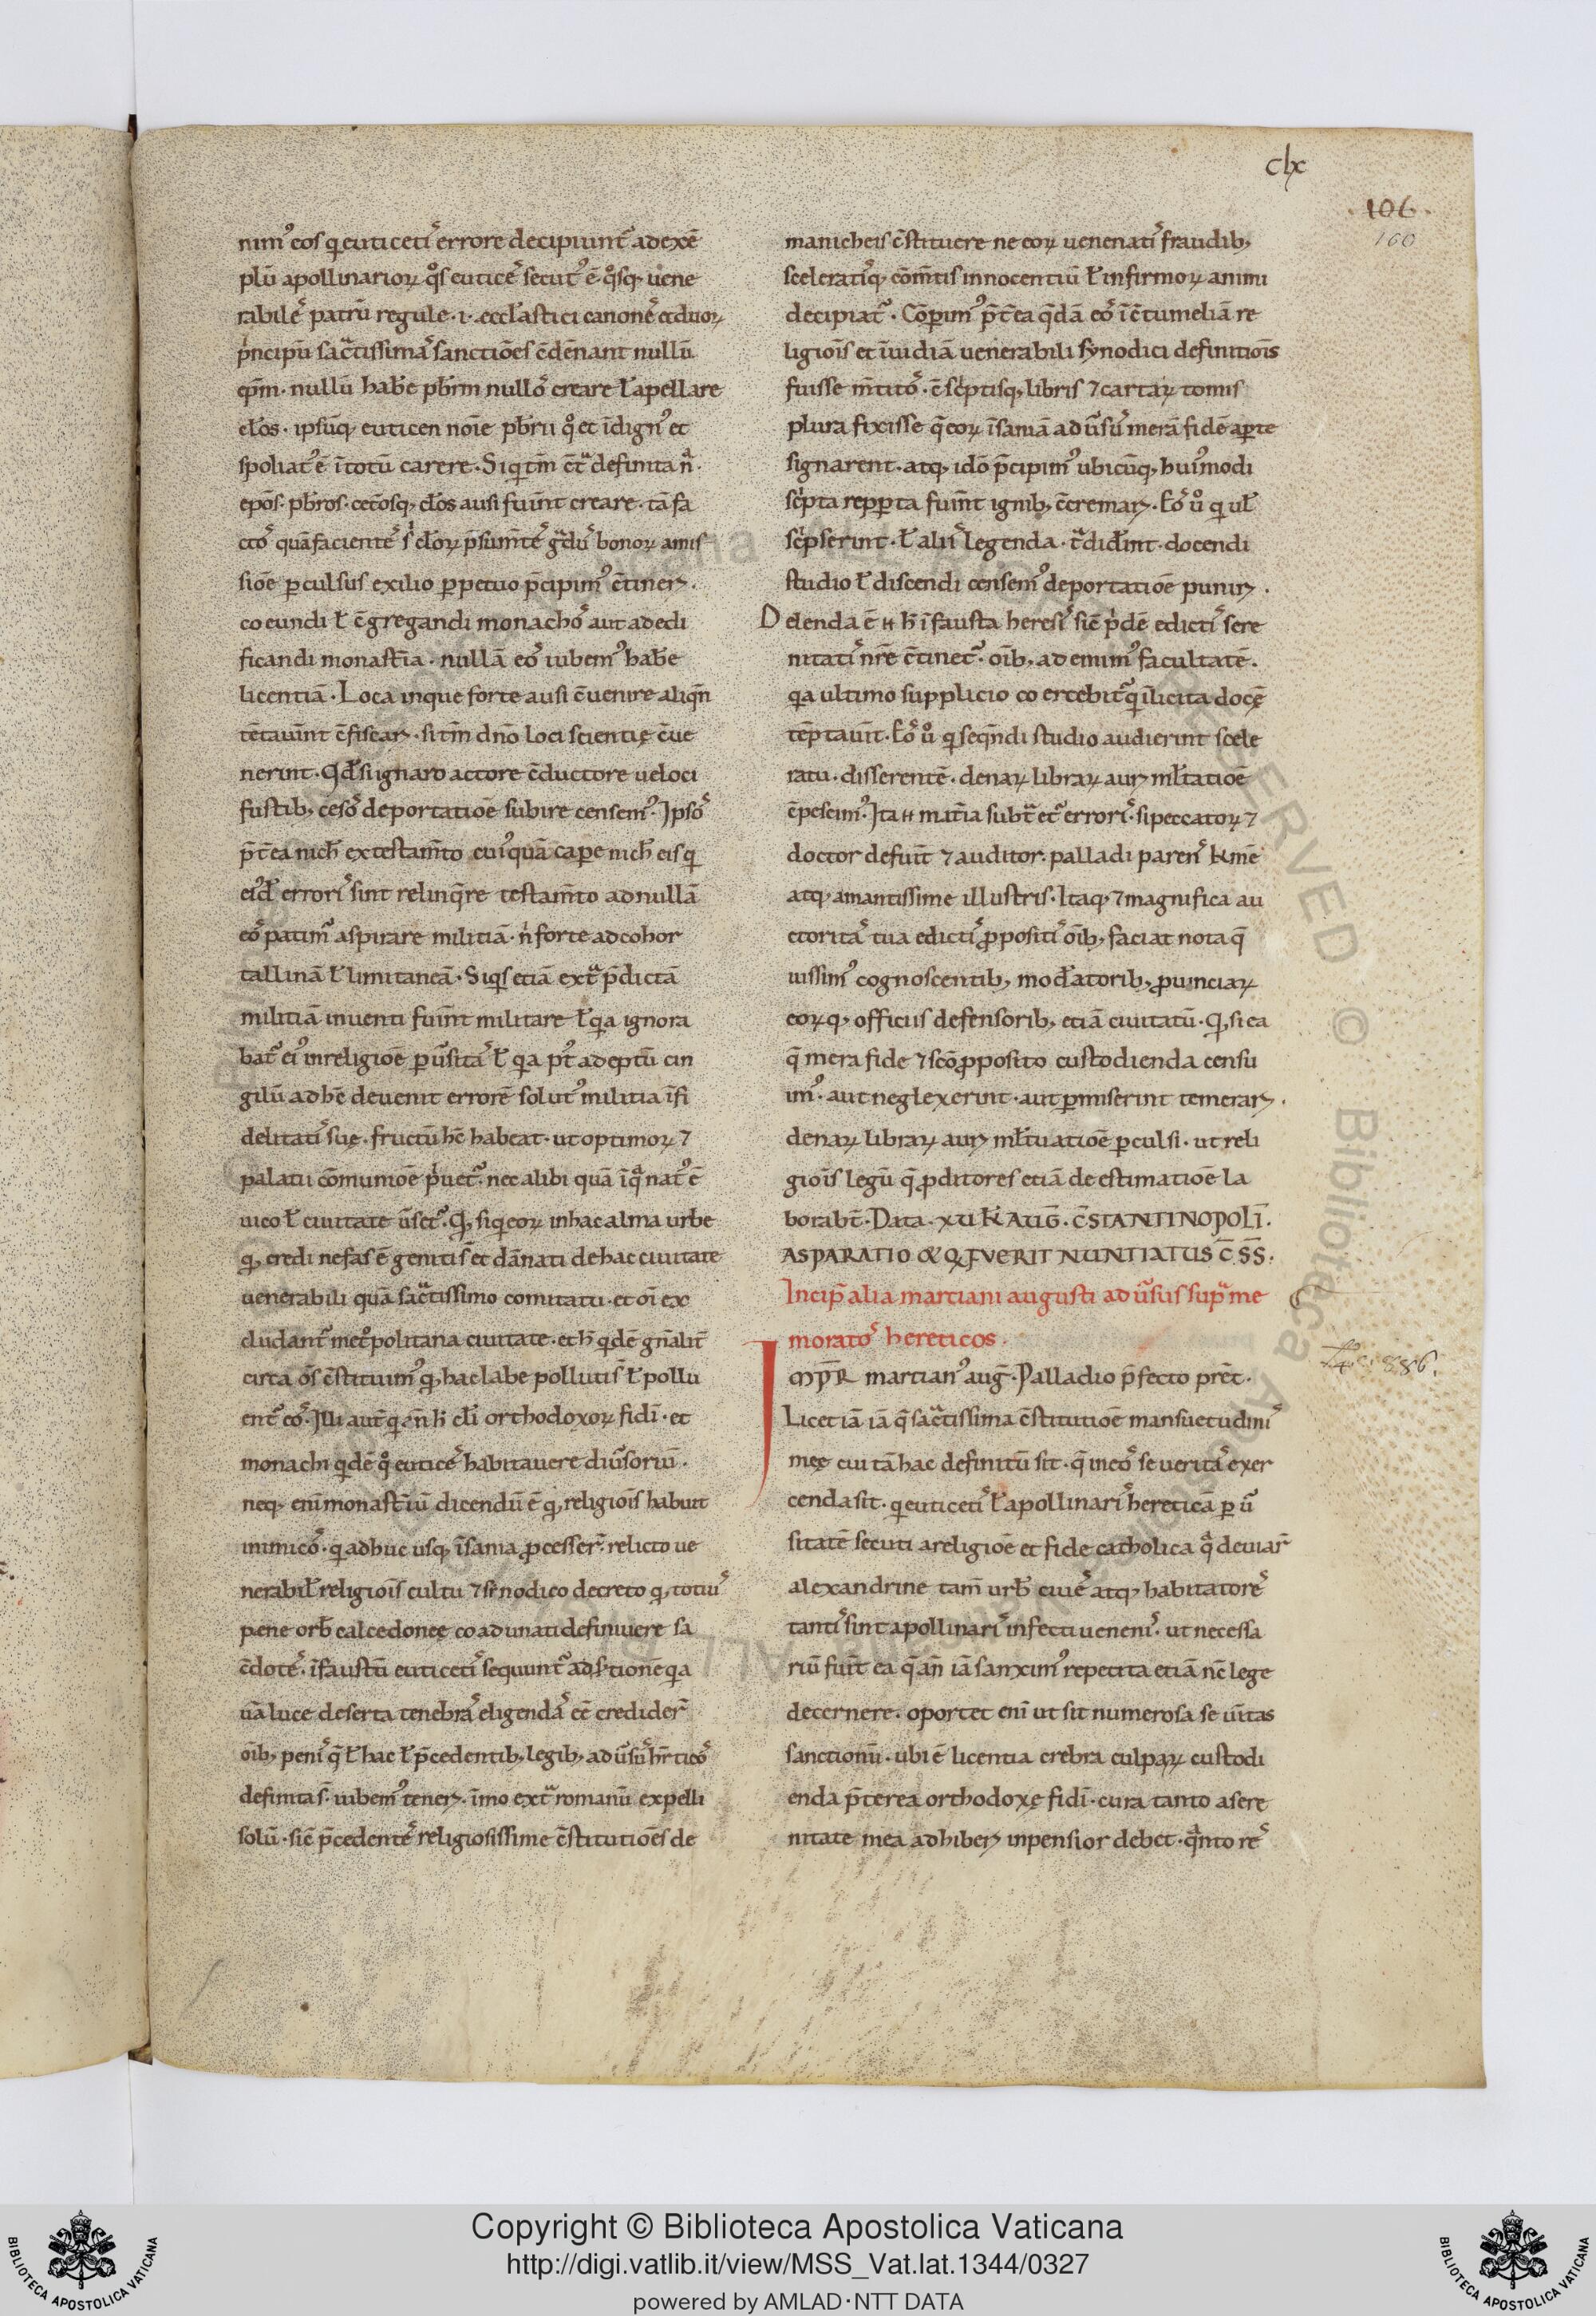 clx
106
160
nim᷒ eos q euticetı᷒ errore decipiunt᷒ ad exē
plū apollinarioꝝ q̊s euticē᷒ secut᷒ ē q̊sq; uene
rabile᷒ patrū regule · i · eccl̄astici canone᷒ et duoꝝ
pͥncipū sac̄tissima᷒ sanctiōes c̄dēnant nullū
ep̄m · nullū habe pb̄rm nullo᷒ creare ł apellare
cl̄os · ipsūq; euticen nōie pb̄rii q̊ et īdign᷒ et
spoliat᷒ ē ī totū carere · Si q tm̄ c̄t̄ definita n̄ ·
ep̄os · pb̄ros · cet̄osq; cl̄os ausi fuīnt creare · tā fa
cto᷒ quā faciente᷒ s cl̄oꝝ p̄sum̄te᷒ g̃du᷒ bonoꝝ amis
siōe ꝑculsus exilio ꝑpetuo p̄cipim᷒ c̄tineꝛ ·
coeundi ł c̄gregandi monacho᷒ aut aedi
ficandi monast̄ia · nullā eo᷒ iubem᷒ hab̄e
licentiā · Loca in que forte ausi c̄uenire aliqn̄
tētauīnt c̄fiscaꝛ · si tm̄ dn̄o loci scientię c̄ue
nerint · Qd̄ si ignaro actore c̄ductore ue loci
fustib; ceso᷒ deportatiōe subire censem᷒ · Ipso᷒
p̄t̄ea nich̄ ex testam̄to cui᷒quā caꝑe nich̄ eis q
ei᷒d̄ errori᷒ sint relinq̄re testam̄to ad nullā
eo᷒ patim᷒ aspirare militiā · nͥ forte ad cohor
tallinā ł limitaneā · Siq᷒s etiā ext̃ p̄dictā
militiā inuenti fuīnt militare ł q̃a ignora
bat᷒ ei᷒ inreligiōe ꝑūsita᷒ ł q̃a p᷒t adeptū cin
gilū ad hc̄ deuenit errorē solut᷒ militia īfi
delitati᷒ suę · fructū hc̄ habeat · ut optimoꝝ ⁊
palatii cōmuniōe pͥuet᷒ · nec alibi quā ī q̃ nat᷒ ē
uico ł ciuitate ūset᷒ · Q; si q eoꝝ in hac alma urbe
q; credi nefas ē geniti s̄ et dānati de hac ciuitate
uenerabili quā sac̄tissimo comitatu · et oī ex
cludant᷒ met᷒politana ciuitate · et h̄ qͥdē gn̄alit̄
circa ōs c̄stituim᷒ q; hac labe pollutis ł pollu
ent᷒ eo᷒ · Illi aut̄ q ān h̄ cl̄i orthodoxoꝝ fidī · et
monachi qͥdē q̊ euticē᷒ habitauere diūsoriū ·
neq; enī monast̄iū dicendū ē q; religioīs habuit
inimico᷒ · q adhuc usq; īsania ꝓcesser᷒ · relicto ue
nerabil᷒ religioīs cultu ⁊ sinodico decreto q; totiu᷒
pene orb̄ calcedonee coadunati definiuere sa
c̄dote᷒ · īfaustū euticeti᷒ sequunt᷒
uā luce deserta tenebra᷒ eligenda᷒ eē credider᷒
oīb; peni᷒ q̄ ł hac ł p̄cedentib; legib; adūsu᷒ hr̄tico᷒
definita s̄ · iubem᷒ teneꝛ · īmo ext̃ romanū expelli
solū · sic̄ p̄cedente᷒ religiosissime c̄stitutiōes de
manicheis c̄stituere ne eoꝝ uenenati᷒ fraudib;
sceleratisq; cōm̄tis innocentiū ł infirmoꝝ animi
decipiat᷒ · Cōꝑim᷒ p̄t̄ea q̃dā eo᷒ ī c̄tumeliā re
ligioīs et īuidiā uenerabili synodici definitioīs
fuisse m̄tito᷒ · c̄scͥptisq; libris ⁊ cartaꝝ tomis
plura fixisse q̄ eoꝝ īsaniā adūsu᷒ merā fidē aꝑte
signarent · atq; idō p̄cipim᷒ ubicūq; hui᷒modi
scͥpta repꝑta fuīnt ignib; c̄cremaꝛ · Eo᷒ ů q ul᷒
scͥpserint · ł alii᷒ legenda · t̃did̄int · docendi
studio ł discendi censem᷒ deportatiōe puniꝛ ·
Delenda ē n h̄ īfausta heresi᷒ sic̄ pͥdē edicti᷒ sere
nitati᷒ nr̄e c̄tinet᷒ · oīb; ademim᷒ facultatē ·
q̃a ultimo supplicio coercebit᷒ q īlicita docē
tēptauīt · Eo᷒ ů q seqn̄di studio audierint scele
rata · disserentē · denaꝝ libraꝝ auꝛ ml̄tatiōe
c̄pescim᷒ · Ita n mat̄ia subt̃et᷒ errori᷒ · si peccatoꝝ ⁊
doctor defuīt ⁊ auditor · palladi paren᷒ kͥme
atq; amantissime illustris · Itaq; ⁊ magnifica au
ctorita᷒ tua edicti᷒ ꝓpositi᷒ oīb; faciat nota q̄
uissim᷒ cognoscentib; mod̄atorib; ꝓuinciaꝝ
eoꝝq; officiis defensorib; etiā ciuitatū · Q; si ea
q̄ mera fide ⁊ sc̄o ꝓposito custodienda censu
im᷒ · aut neglexerint · aut ꝑmiserint temeraꝛ ·
denaꝝ libraꝝ auꝛ ml̄tuatiōe ꝑculsi · ut reli
gioīs legū q̄ ꝓditores etiā de estimatiōe la
borabt̄ · Data · xu kł AUḠ · C̄STANTINOPOLĪ ·
ASPARATIO & Q̨ FUERIT NUNTIATUS C̄ S̄S̄ ·
Incip̄ alia martiani augusti adūsus sup̃me
morato᷒ hereticos ·
IMP̄R martian᷒ aug̅ · Palladio p̄fecto pr̄et ·
Licet iā iā q̄ sac̄tissima c̄stitutiōe mansuetudini᷒
męę cuitā hac definitū sit · q̄ in eo᷒ seuerita᷒ exer
cenda sit · q euticeti᷒ ł apollinari᷒ hereticā ꝑū
sitatē secuti a religiōe et fide catholica q̃ deuiar᷒
alexandrine tam̄ urb̄ ciue᷒ atq; habitatore᷒
tanti᷒ sint apollinari᷒ infecti ueneni᷒ · ut necessa
riū fuīt ea q̄ an̄ iā sanxim᷒ repetita etiā nc̄ lege
decernere · oportet enī ut sit numerosa seuītas
sanctionū · ubi ē licentia crebra culpaꝝ custodi
enda p̄terea orthodoxę fidī · cura tanto a sere
nitate mea adhibeꝛ inpensior debet · q̃nto re᷒
Copyright © Biblioteca Apostolica Vaticana
http://digi.vatlib.it/view/MSS_Vat.lat.1344/0327
powered by AMLAD·NTT DATA
BIBLIOTECA APOSTOLICA VATICANA
BIBLIOTECA APOSTOLICA VATICANA